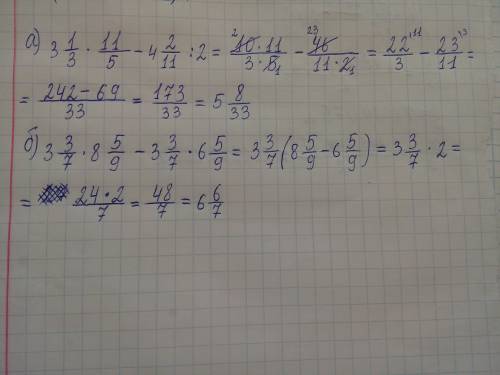 а) 3 1/3 · 11/5 − 4 2/11 : 2 = (10 · 11)/(3 · 5) − 46/(11 · 2) = 22/3 − 23/11 =
= (242 − 69)/33 = 173/33 = 5 8/33
б) 3 3/7 · 8 5/9 − 3 3/7 · 6 5/9 = 3 3/7 (8 5/9 − 6 5/9) = 3 3/7 · 2 =
= (24 · 2)/7 = 48/7 = 6 6/7